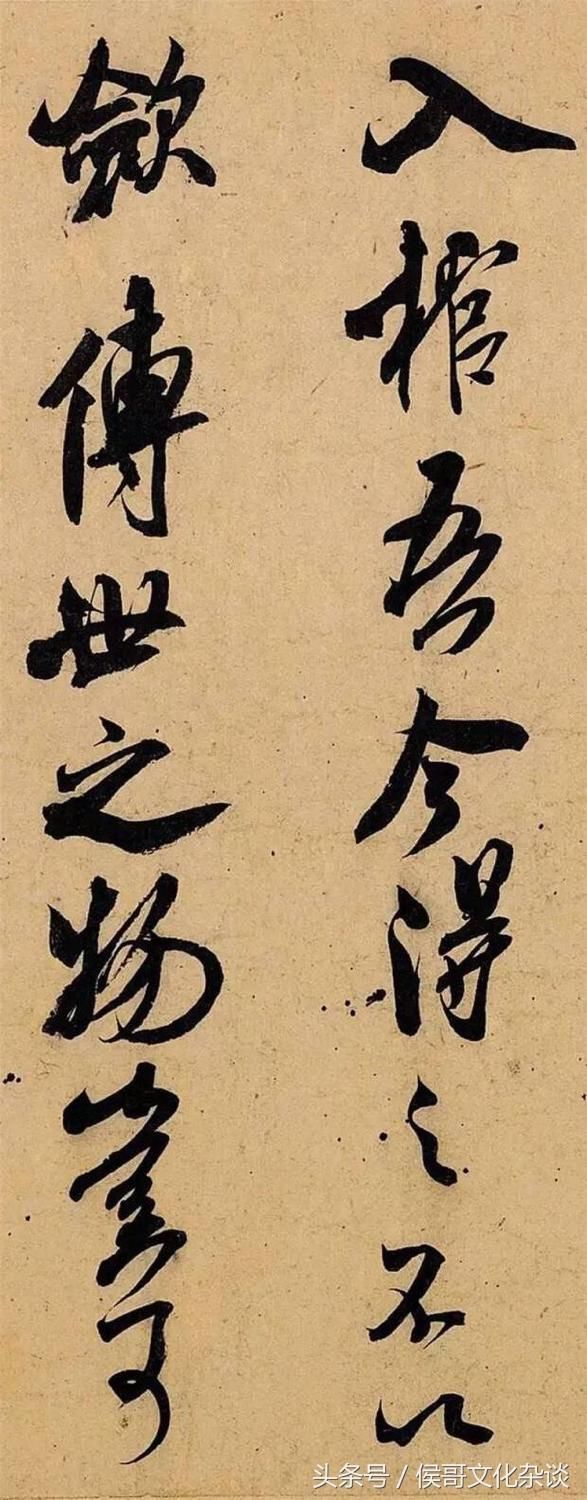 入棺吾今得之不以
斂傳世之物豈可
头条号/侯哥文化杂谈